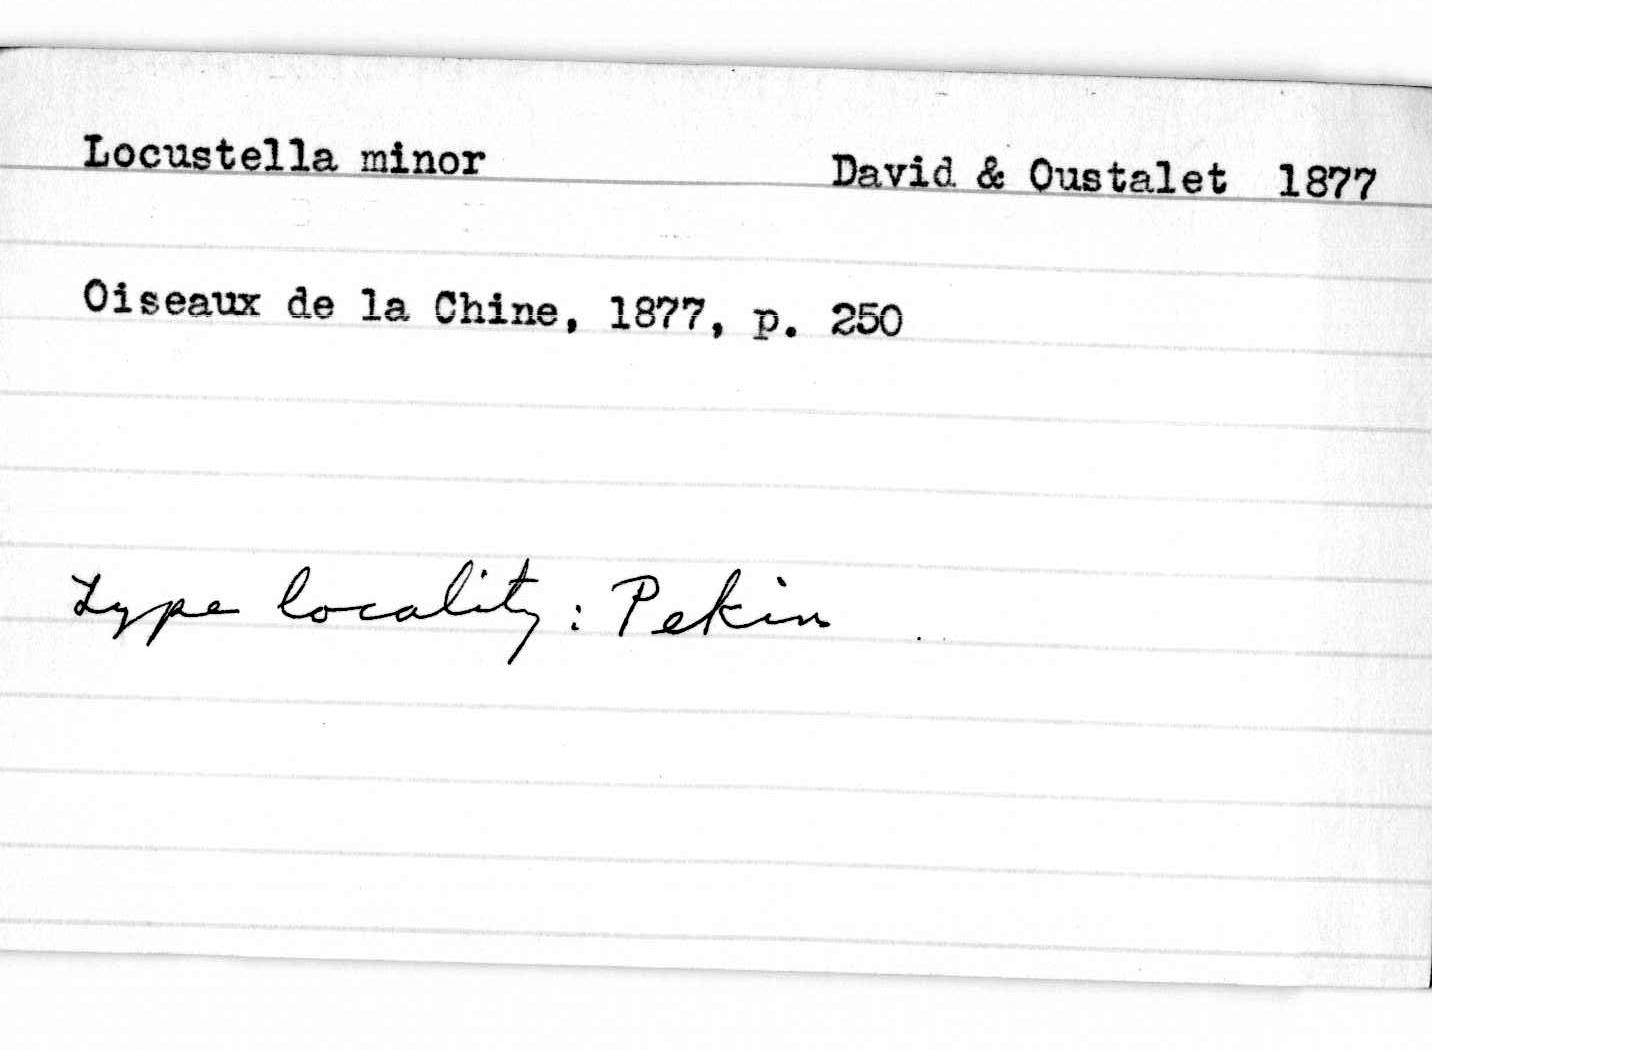 Locustella minor David & Oustalet 1877
Oiseaux de la Chine, 1877, p. 250
Type locality: Pekin